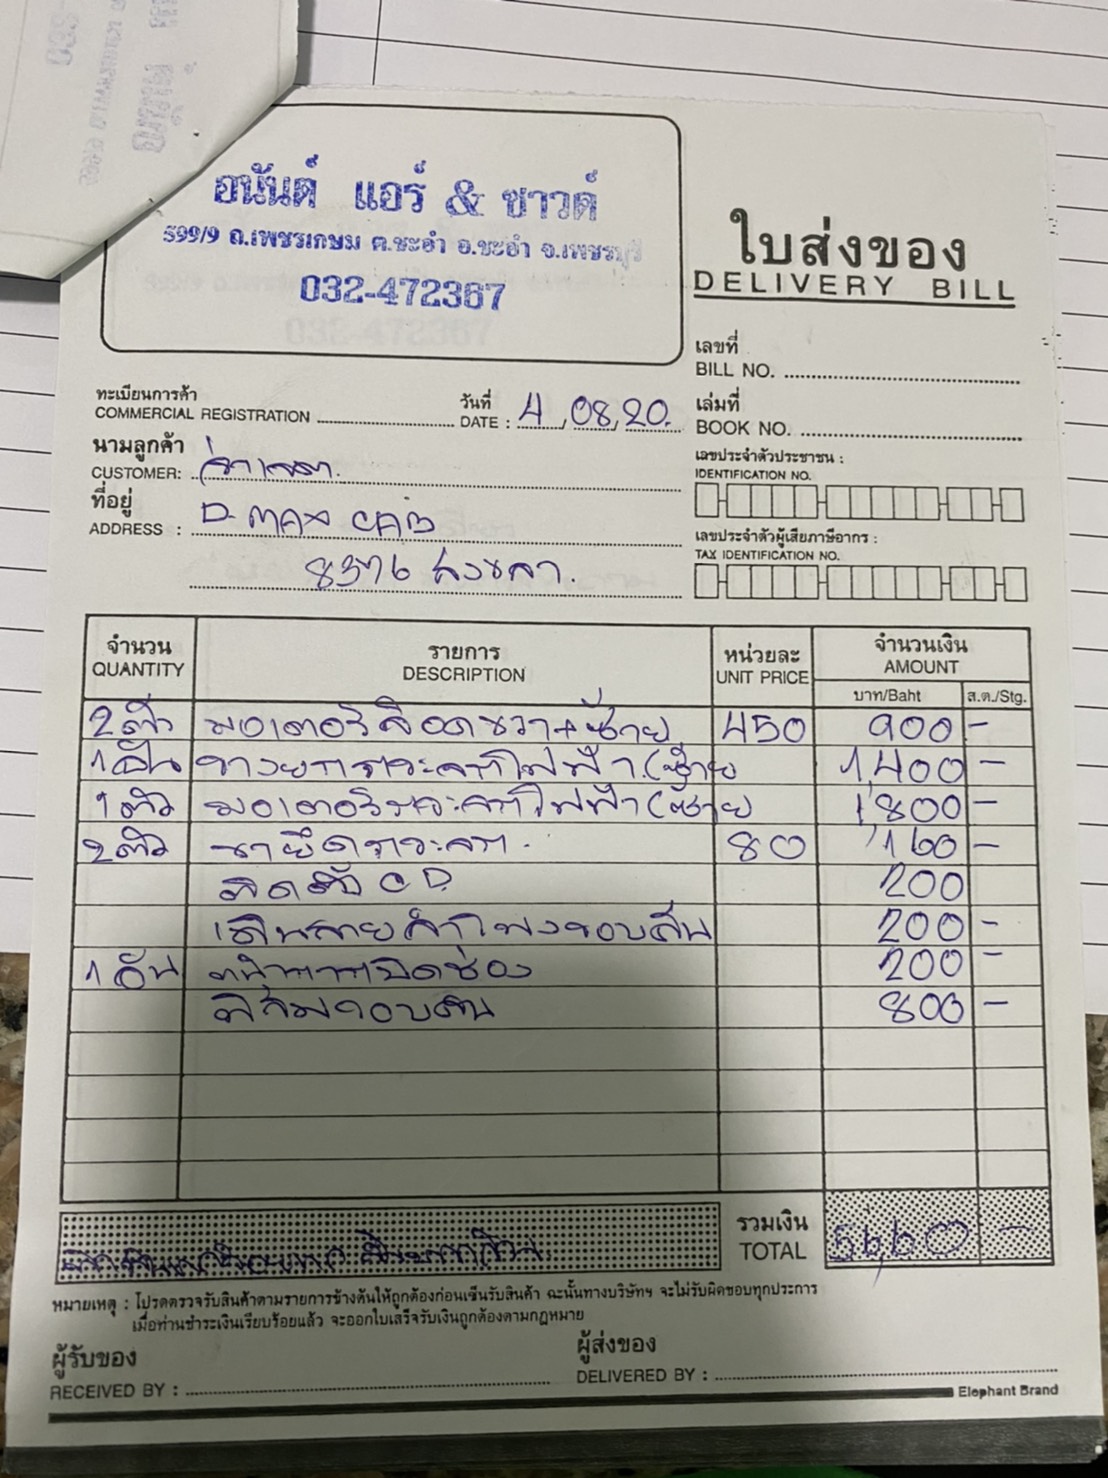 อนันต์ แอร์ & ซาวด์
599/9 ถ.เพชรเกษม ต.ชะอำ อ.ชะอำ จ.เพชรบุรี
032-472367
ใบส่งของ
DELIVERY BILL
เลขที่
BILL NO.
ทะเบียนการค้า
COMMERCIAL REGISTRATION
วันที่
DATE : 4 , 08, 20.
เล่มที่
BOOK NO.
นามลูกค้า
CUSTOMER:
เลขประจำตัวประชาชน :
IDENTIFICATION NO.
ที่อยู่
ADDRESS : D-MAX CAB
8376 สงขลา.
เลขประจำตัวผู้เสียภาษีอากร :
TAX IDENTIFICATION NO.
จำนวน รายการ หน่วยละ จำนวนเงิน
QUANTITY DESCRIPTION UNIT PRICE AMOUNT
บาท/Baht ส.ต./Stg.
2 ตัว มอเตอร์ล็อคขวา+ซ้าย 450 900 -
1 อัน รางยกกระจกไฟฟ้า (ซ้าย 1,400 -
1 ตัว มอเตอร์กระจกไฟฟ้า (ซ้าย 1,800 -
2 ตัว ขายึดกระจก. 80 160 -
ติดตั้ง CD 200
เดินสายลำโพงรอบคัน 200 -
1 อัน หน้ากากปิดช่อง 200 -
ฟิล์มรอบคัน 800 -
รวมเงิน
TOTAL 5,660 -
หมายเหตุ : โปรดตรวจรับสินค้าตามรายการข้างต้นให้ถูกต้องก่อนเซ็นรับสินค้า ฉะนั้นทางบริษัทฯ จะไม่รับผิดชอบทุกประการ
เมื่อท่านชำระเงินเรียบร้อยแล้ว จะออกใบเสร็จรับเงินถูกต้องตามกฎหมาย
ผู้รับของ
RECEIVED BY :
ผู้ส่งของ
DELIVERED BY :
Elephant Brand